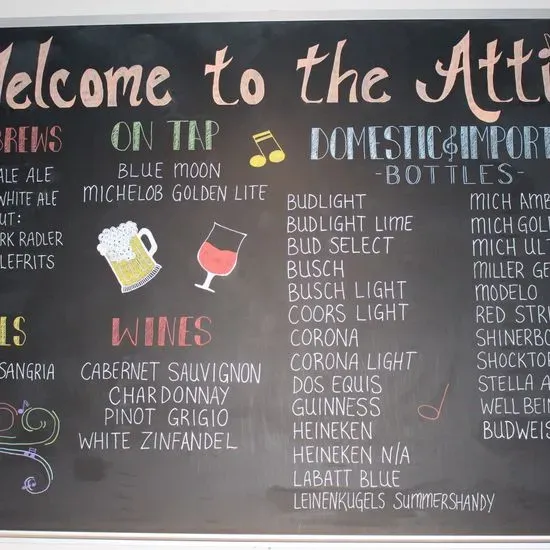 Welcome to the Atti
BREWS
ALE ALE
WHITE ALE
UT:
RK RADLER
LEFRITS
LS
SANGRIA
ON TAP
BLUE MOON
MICHELOB GOLDEN LITE
WINES
CABERNET SAUVIGNON
CHARDONNAY
PINOT GRIGIO
WHITE ZINFANDEL
DOMESTIC & IMPORT
- BOTTLES -
BUDLIGHT
BUDLIGHT LIME
BUD SELECT
BUSCH
BUSCH LIGHT
COORS LIGHT
CORONA
CORONA LIGHT
DOS EQUIS
GUINNESS
HEINEKEN
HEINEKEN N/A
LABATT BLUE
LEINENKUGELS SUMMERSHANDY
MICH AMB
MICH GOL
MICH ULT
MILLER GE
MODELO
RED STRI
SHINERBO
SHOCKTO
STELLA A
WELL BEIN
BUDWEIS